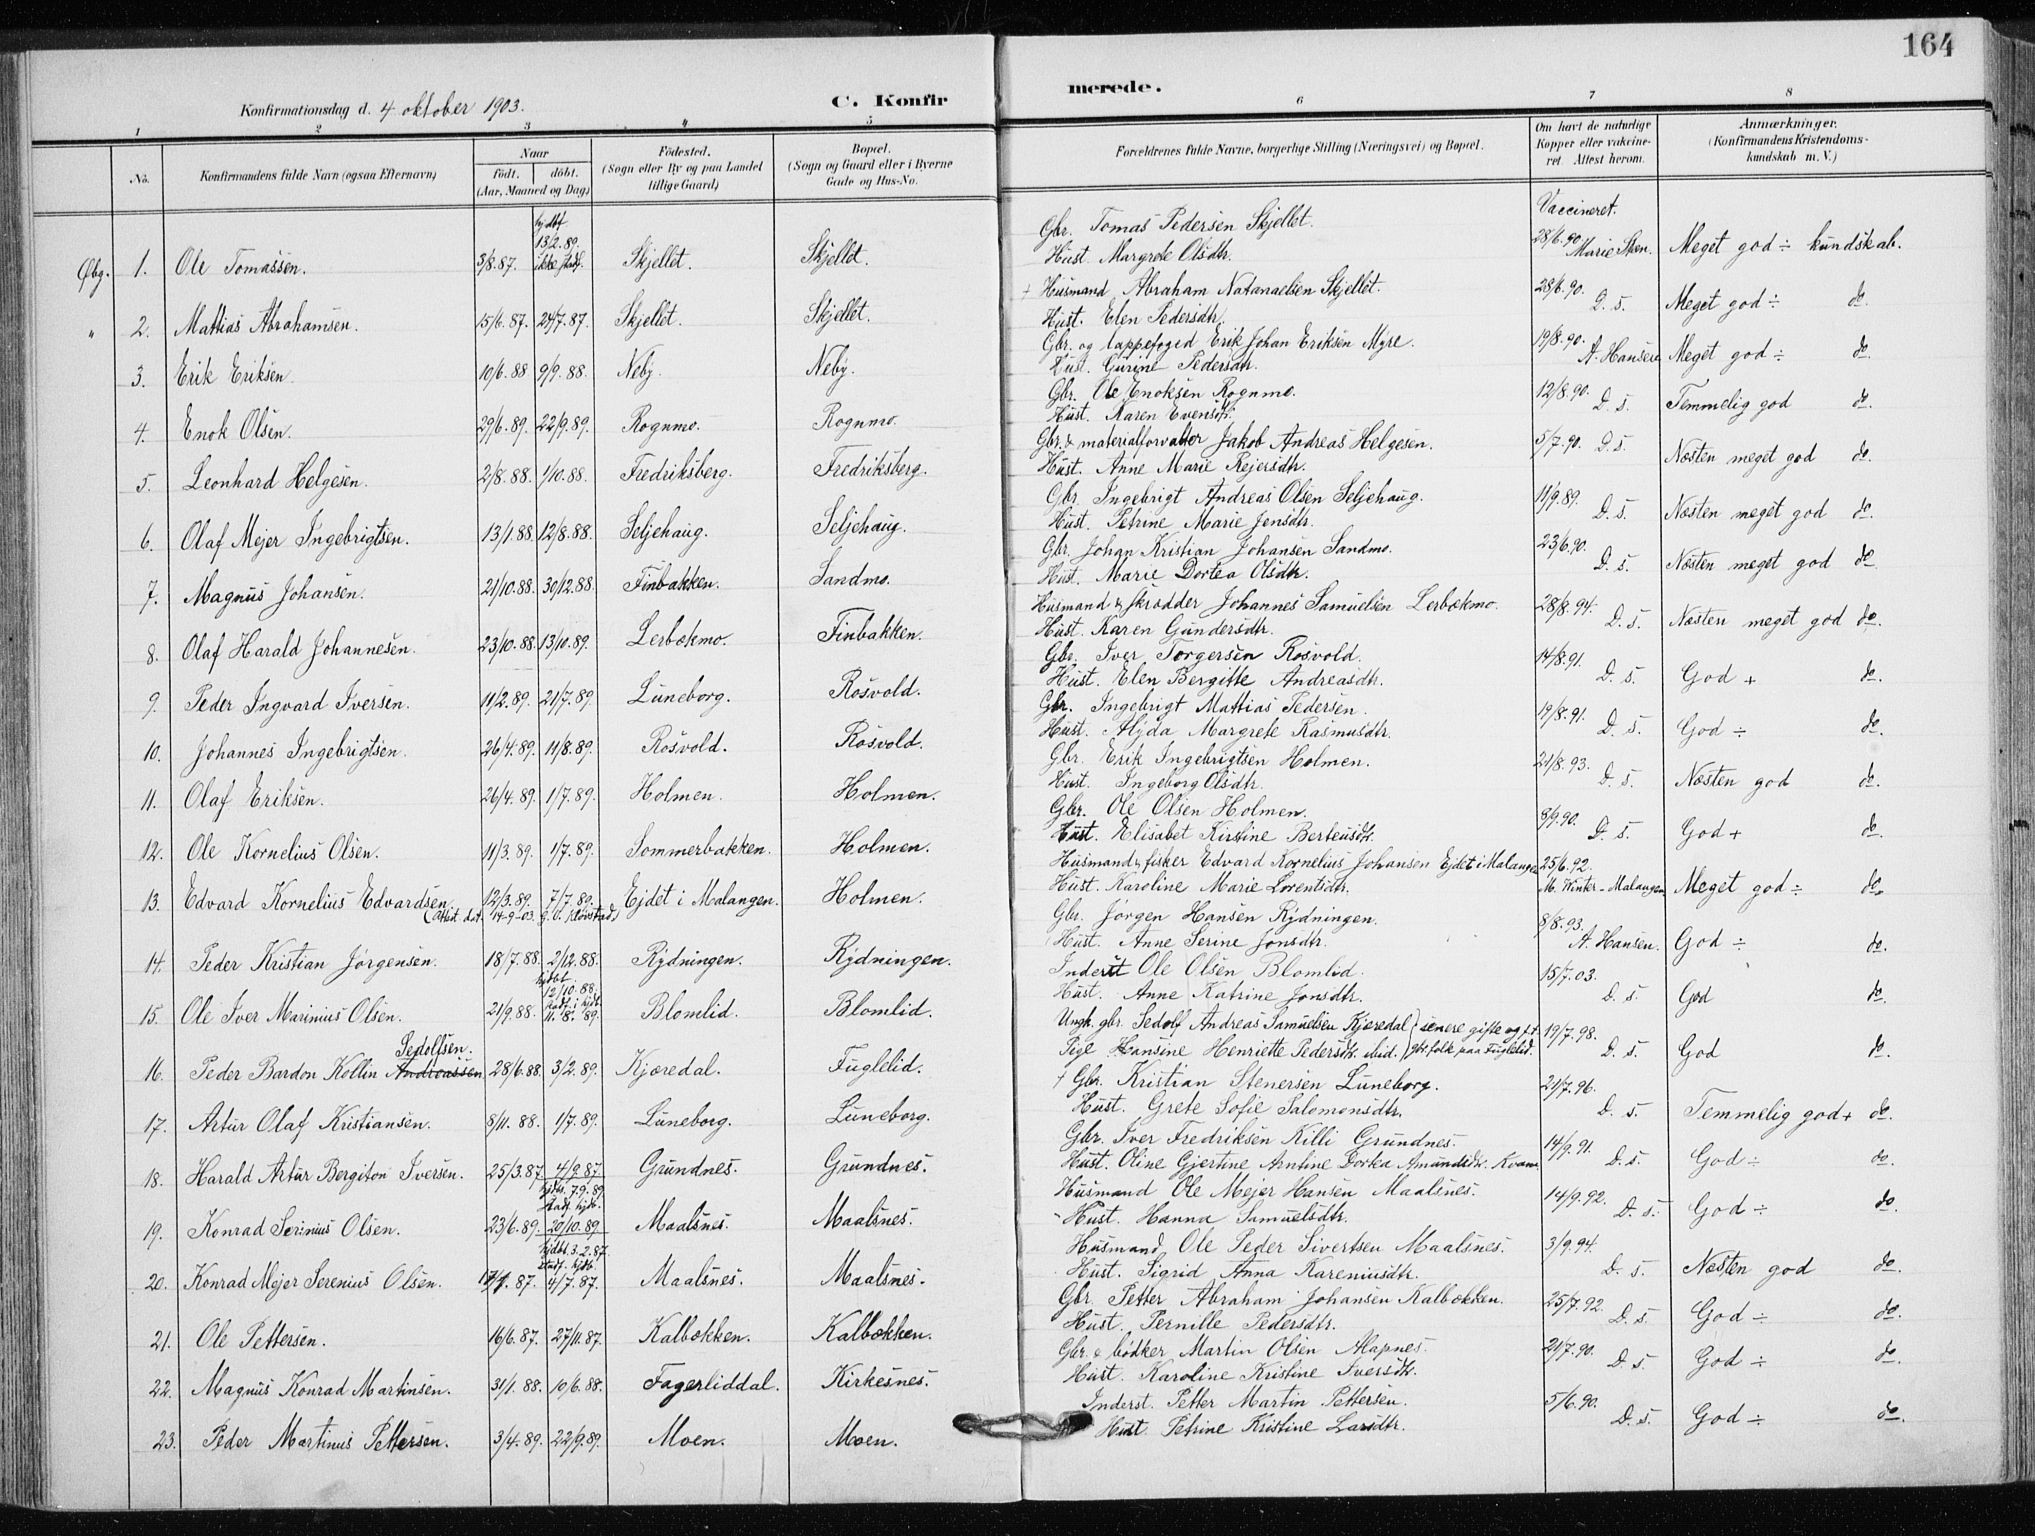 164
Konfirmationsdag d. 4 oktober 1903. C. Konfirmerede.
1 2 3 4 5 6 7 8
No. Konfirmandens fulde Navn (ogsaa Efternavn) Naar født. døbt. (Aar, Maaned og Dag) Fødested. (Sogn eller By og paa Landet tillige Gaard) Bopæl. (Sogn og Gaard eller i Byerne Gade og Hus-No. Forældrenes fulde Navne, borgerlige Stilling (Næringsvei) og Bopæl. Om havt de naturlige Kopper eller vakcineret. Attest herom. Anmærkninger. (Konfirmandens Kristendomskundskab m. V.)
Øbg. 1. Ole Tomassen. 3/8.87. hjdbt 13/2.89. ikke stadf. Skjellet. Skjellet. Gbr. Tomas Pedersen Skjellet. Vaccineret.
Hust. Margrete Olsdtr. 28/6.90 Marie Sten. Meget god ÷ kundskab.
" 2. Mattias Abrahamsen. 15/6.87. 24/7.87. Skjellet. Skjellet. + Husmand Abraham Natanaelsen Skjellet. 28/6.90. D. s. Meget god ÷ do.
Hust. Elen Pedersdtr.
3. Erik Eriksen. 10/6.88 9/9.88. Neby. Neby. Gbr. og lappefoged Erik Johan Eriksen Myre. 19/8.90. A. Hansen Meget god ÷ do.
Hust. Gurine Pedersdtr.
4. Enok Olsen. 29/6.89. 22/9.89. Rognmo. Rognmo. Gbr. Ole Enoksen Rognmo. 12/8.90. D. s. Temmelig god do.
Hust. Karen Evensdtr.
5. Leonhard Helgesen. 2/8.88. 1/10.88. Fredriksberg. Fredriksberg. Gbr. & materialforvalter Jakob Andreas Helgesen. 5/7.90. D. s. Næsten meget god do.
Hust. Anne Marie Rejersdtr.
6. Olaf Mejer Ingebrigtsen. 13/1.88. 12/8.88. Seljehaug. Seljehaug. Gbr. Ingebrigt Andreas Olsen Seljehaug. 11/9.89. D. s. Næsten meget god do.
Hust. Petrine Marie Jensdtr.
7. Magnus Johansen. 21/10.88. 30/12.88. Finbakken. Sandmo. Gbr. Johan Kristian Johansen Sandmo. 23/6.90. D. s. Næsten meget god do.
Hust. Marie Dortea Olsdtr.
8. Olaf Harald Johannesen. 23/10.88. 13/10.89. Lerbækmo. Finbakken. Husmand & skrædder Johannes Samuelsen Lerbækmo. 28/8.94. D. s. Næsten meget god do.
Hust. Karen Gundersdtr.
9. Peder Ingvard Iversen. 11/2.89. 21/7.89. Luneborg. Rosvold. Gbr. Iver Torgersen Rosvold. 14/8.91. D. s. God + do.
Hust. Elen Bergitte Andreasdtr.
10. Johannes Ingebrigtsen. 26/4.89. 11/8.89. Rosvold. Rosvold. Gbr. Ingebrigt Mattias Pedersen. 19/8.91. D. s. God ÷ do.
Hust. Alyda Margrete Rasmusdtr.
11. Olaf Eriksen. 26/4.89. 1/7.89. Holmen. Holmen. Gbr. Erik Ingebrigtsen Holmen. 21/8.93. D. s. Næsten god do.
Hust. Ingeborg Olsdtr.
12. Ole Kornelius Olsen. 11/3.89. 1/7.89. Sommerbakken. Holmen. Gbr. Ole Olsen Holmen. 8/9.90. D. s. God + do.
Hust. Elisabet Kirstine Berteusdtr.
13. Edvard Kornelius Edvardsen 12/3.89. 7/7.89. Ejdet i Malangen. Holmen. Husmand & fisker Edvard Kornelius Johansen Ejdet i Malangen 25/6.92. M. Winter - Malangen. Meget god ÷ do.
(Attest dat. 14-9-03. Hust. Karoline Marie Lorentsdtr.
14. Peder Kristian Jørgensen. 18/7.88. 2/12.88. Rydningen. Rydningen. Gbr. Jørgen Hansen Rydningen. 8/8.93. A. Hansen. God ÷ do.
Hust. Anne Serine Jonsdtr.
15. Ole Iver Marinius Olsen. 21/9.88. hjdbt 12/10.88. stadf. i hjdt. 11.8.89. Blomlid. Blomlid. Inderst Ole Olsen Blomlid. 15/7.03. D. s. God do.
Hust. Anne Katrine Jonsdtr.
16. Peder Bardon Kollin Andreassen Sedolfsen. 28/6.88. 3/2.89. Kjæredal. Fuglelid. Ungk. gbr. Sedolf Andreas Samuelsen Kjæredal } senere gifte og f.t. 19/7.98. D. s. God do.
Pige Hansine Henriette Pedersdtr. ibid. } gbr.folk paa Fuglelid.
17. Artur Olaf Kristiansen. 8/11.88. 1/7.89. Luneborg. Luneborg. + Gbr. Kristian Stenersen Luneborg. 21/7.96. D. s. Temmelig god + do.
Hust. Grete Sofie Salomonsdtr.
18. Harald Artur Bergiton Iversen. 25/3.87. 4/9.87. Grundnes. Grundnes. Gbr. Iver Fredriksen Killi Grundnes. 14/9.91. D. s. God ÷ do.
Hust. Oline Gjertine Arntine Dortea Amundsdtr. Kvam
19. Konrad Serinius Olsen. 23/6.89. hjdbt. 7.9.89 stadf. hjdb. 20/10.89. Maalsnes. Maalsnes. Husmand Ole Mejer Hansen Maalsnes. 14/9.92. D. s. God ÷ do.
Hust. Hanna Samuelsdtr.
20. Konrad Mejer Serenius Olsen. 17/1.87. hjdbt. 3.2.87. stadf. hjdb. 4/7.87. Maalsnes. Maalsnes. Husmand Ole Peder Sivertsen Maalsnes. 3/9.94. D. s. Næsten god do.
Hust. Sigrid Anna Kareniusdtr.
21. Ole Pettersen. 16/6.87. 27/11.87. Kalbækken. Kalbækken. Gbr. Petter Abraham Johansen Kalbækken. 25/7.92. D. s. God ÷ do.
Hust. Pernille Pedersdtr.
22. Magnus Konrad Martinsen. 31/1.88. 10/6.88. Fagerliddal. Kirkesnes. Gbr. & bødker Martin Olsen Alapnes. 21/7.90. D. s. God ÷ do.
Hust. Karoline Kristine Iversdtr.
23. Peder Martinus Pettersen. 3/4.89. 22/9.89. Moen. Moen. Inderst. Petter Martin Pettersen. 5/6.90. D. s. God ÷ do.
Hust. Petrine Kristine Larsdtr.